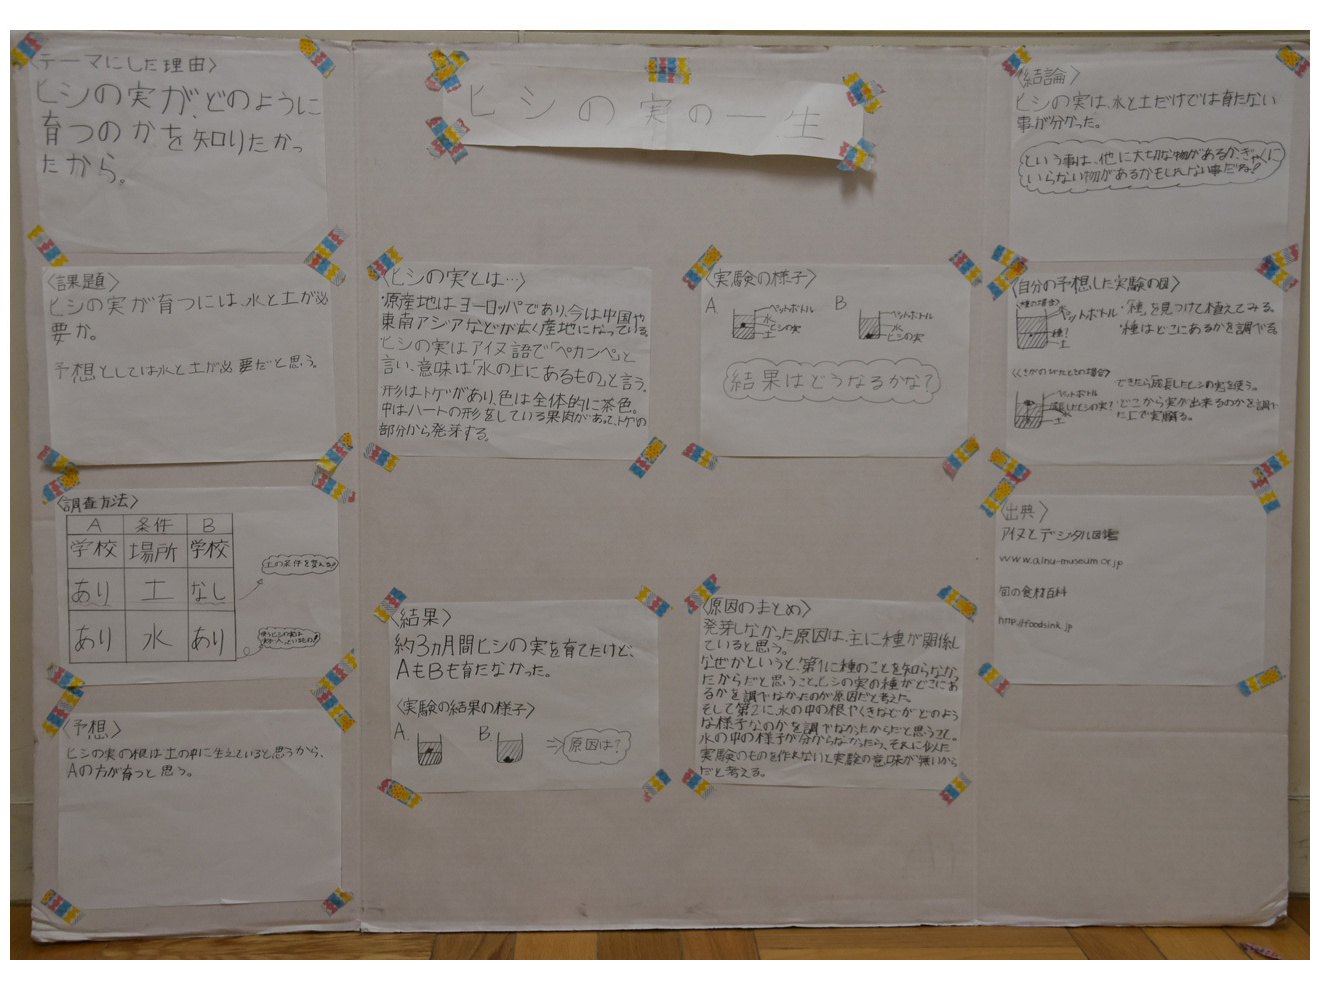 ヒシの実の一生
〈テーマにした理由〉
ヒシの実が、どのように
育つのかを知りたかっ
たから。
〈課題〉
ヒシの実が育つには、水と土が必
要か。
予想としては水と土が必要だと思う。
〈調査方法〉
A 条件 B
学校 場所 学校
あり 土 なし
土の条件を変える!
あり 水 あり
〈予想〉
ヒシの実の根は土の中に生えていると思うから、
Aの方が育つと思う。
〈ヒシの実とは…〉
・原産地はヨーロッパであり、今は中国や
東南アジアなどが広く産地になっている。
ヒシの実はアイヌ語で「ペカンペ」と
言い、意味は「水の上にあるもの」と言う。
形はトゲがあり、色は全体的に茶色。
中はハートの形をしている果肉があって、トゲの
部分から発芽する。
〈実験の様子〉
A.
ペットボトル
水
ヒシの実
土
B
ペットボトル
水
ヒシの実
結果はどうなるかな?
〈結果〉
約3ヵ月間ヒシの実を育てたけど、
AもBも育たなかった。
〈実験の結果の様子〉
A.
B.
⇒ 原因は?
〈原因のまとめ〉
発芽しなかった原因は、主に種が関係し
ていると思う。
なぜかというと、第1に種のことを知らなかっ
たからだと思うこと。ヒシの実の種がどこにあ
るかを調べなかったのが原因だと考えた。
そして第2に、水の中の根やくきなどがどのよう
な様子なのかを調べなかったからだと思う
水の中の様子が分からなかったら、それに似た
実験のものを作れないと実験の意味が無いから
だと考える。
〈結論〉
ヒシの実は、水と土だけでは育たない
事が分かった。
という事は、他に大切な物があるか、ぎゃくに
いらない物があるかもしれない事だね!
〈自分の予想した実験の図〉
〈種の場合〉
ペットボトル
種?
土
・「種」を見つけて植えてみる。
・種はどこにあるかを調べる。
ペットボトル
成長したヒシの実?
水
土
・できたら成長したヒシの実を使う。
・どこから実が出来るのかを調べ
た上で実験する。
〈出典〉
アイヌとデジタル図鑑
www.ainu-museum.or.jp
旬の食材百科
http://foodsink.jp